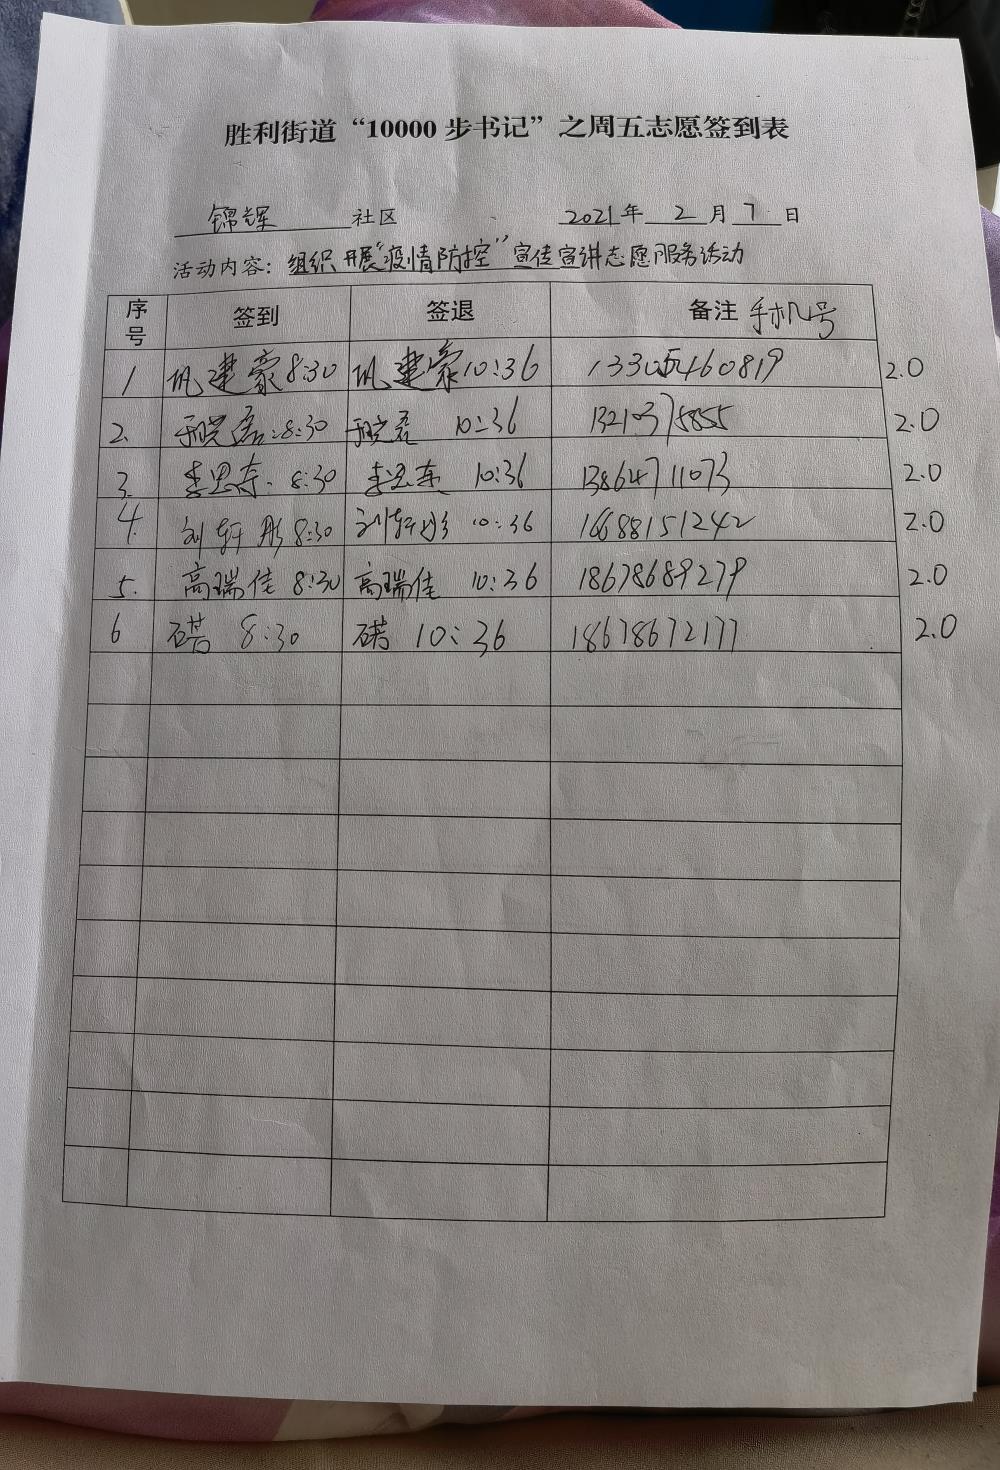 胜利街道“10000步书记”之周五志愿签到表
锦辉 社区 2021年 2 月 7 日
活动内容：组织开展“疫情防控”宣传宣讲志愿服务活动
序号 签到 签退 备注 手机号
1 巩建豪 8:30 巩建豪 10:36 13305460819 2.0
2. 8:30 10:36 13210375855 2.0
3. 李思东 8:30 李思东 10:36 13864711073 2.0
4. 刘轩彤 8:30 刘轩彤 10:36 16688151242 2.0
5. 高瑞佳 8:30 高瑞佳 10:36 18678689279 2.0
6 8:30 10:36 18678672177 2.0